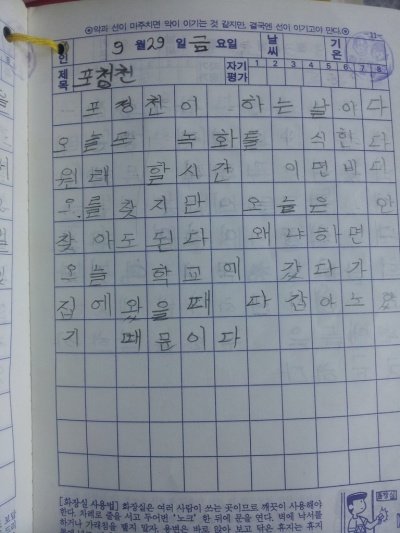 ⊙악과 선이 마주치면 악이 이기는 것 같지만, 결국엔 선이 이기고야 만다.⊙
9월 29일 금요일 날씨 기온
제목 포청천 자기평가 1 2 3 4 5 6 7 8
포청천이 하는 날이다
오늘도 녹화를 식한다
원래 할시간 이면반디
오.를 찾지만 오늘은 안
찾아도 된다 왜냐하면
오늘 학교에 갔다가
집에 왔을때 다 감아노왔
기 때문이다
[화장실 사용법] 화장실은 여러 사람이 쓰는 곳이므로 깨끗이 사용해야
한다. 차례로 줄을 서고 두어번 '노크' 한 뒤에 문을 연다. 벽에 낙서를
하거나 가래침을 뱉지 말자. 용변은 바로 앉아 보고 닦은 휴지는 휴지